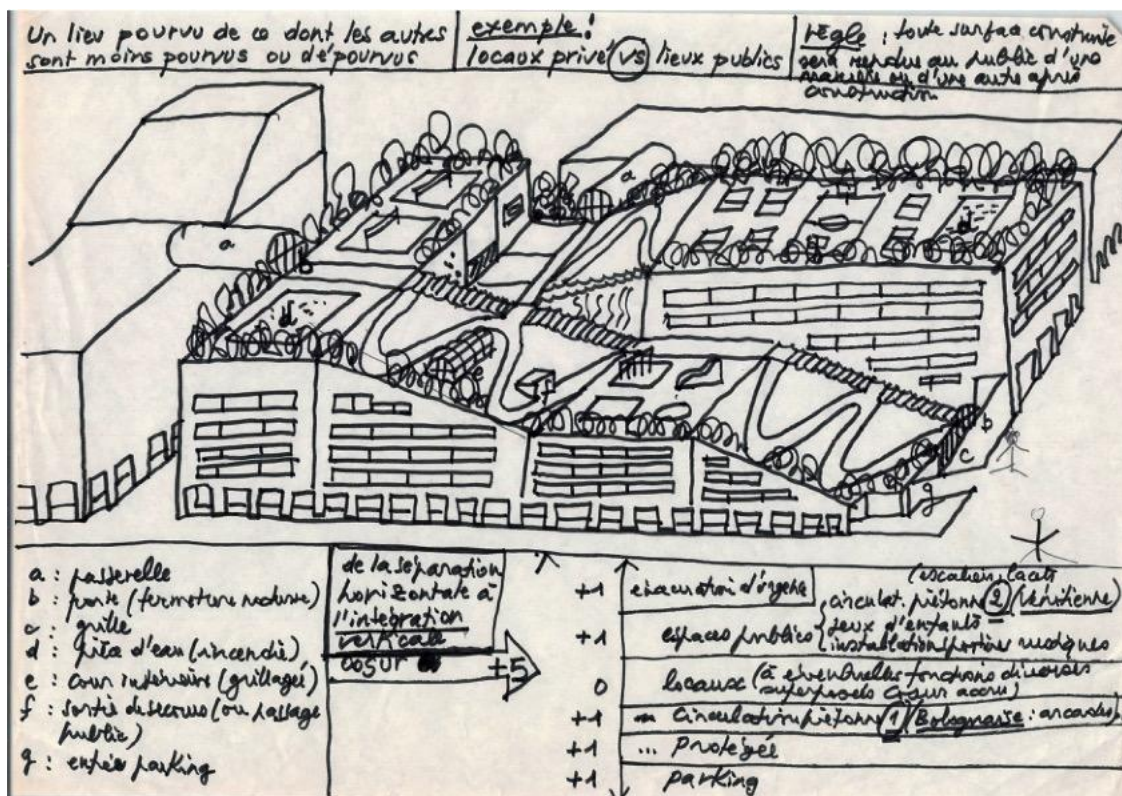 Un lieu pourvu de ce dont les autres
sont moins pourvus ou dépourvus
exemple!
locaux privé vs lieux publics
règle : toute surface construite
sera rendue au public d'une
manière ou d'une autre après
construction
a
a
b
d
d
e
f
b
c
g
a : passerelle
b : porte (fermeture nocturne)
c : grille
d : pièce d'eau (incendie)
e : cour intérieure (grillagée)
f : sortie de secours (ou passage
public)
g : entrée parking
de la séparation
horizontale à
l'intégration
verticale
+5
+1 évacuation d'urgence
(escaliers, lacets
+1 espaces publics
circulat. piétonne 2 (Vénitienne)
jeux d'enfants
installations
0 locaux (à éventuelles fonctions diverses
superposés
+1 circulation piétonne 1 (Bolognaise : arcades)
+1 ... protégée
+1 parking